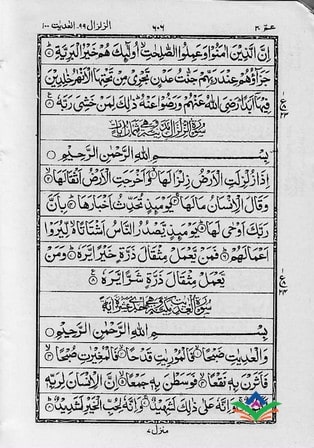 عمّ ٣٠ ٦٠٦ الزلزال ٩٩، العٰدیٰت ١٠٠
اِنَّ الَّذِیْنَ اٰمَنُوْا وَعَمِلُوا الصّٰلِحٰتِ اُولٰٓئِکَ هُمْ خَیْرُ الْبَرِیَّةِ
جَزَآؤُهُمْ عِنْدَ رَبِّهِمْ جَنّٰتُ عَدْنٍ تَجْرِیْ مِنْ تَحْتِهَا الْاَنْهٰرُ خٰلِدِیْنَ
فِیْهَآ اَبَدًا رَضِیَ اللّٰهُ عَنْهُمْ وَرَضُوْا عَنْهُ ذٰلِکَ لِمَنْ خَشِیَ رَبَّهٗ
بِسْمِ اللّٰهِ الرَّحْمٰنِ الرَّحِیْمِ
اِذَا زُلْزِلَتِ الْاَرْضُ زِلْزَالَهَا وَاَخْرَجَتِ الْاَرْضُ اَثْقَالَهَا
وَقَالَ الْاِنْسَانُ مَا لَهَا یَوْمَئِذٍ تُحَدِّثُ اَخْبَارَهَا بِاَنَّ
رَبَّکَ اَوْحٰی لَهَا یَوْمَئِذٍ یَّصْدُرُ النَّاسُ اَشْتَاتًا لِّیُرَوْا
اَعْمَالَهُمْ فَمَنْ یَّعْمَلْ مِثْقَالَ ذَرَّةٍ خَیْرًا یَّرَهٗ وَمَنْ
یَّعْمَلْ مِثْقَالَ ذَرَّةٍ شَرًّا یَّرَهٗ
بِسْمِ اللّٰهِ الرَّحْمٰنِ الرَّحِیْمِ
وَالْعٰدِیٰتِ ضَبْحًا فَالْمُوْرِیٰتِ قَدْحًا فَالْمُغِیْرٰتِ صُبْحًا
فَاَثَرْنَ بِهٖ نَقْعًا فَوَسَطْنَ بِهٖ جَمْعًا اِنَّ الْاِنْسَانَ لِرَبِّهٖ
وَاِنَّهٗ عَلٰی ذٰلِکَ لَشَهِیْدٌ وَاِنَّهٗ لِحُبِّ الْخَیْرِ لَشَدِیْدٌ
منزل ٧